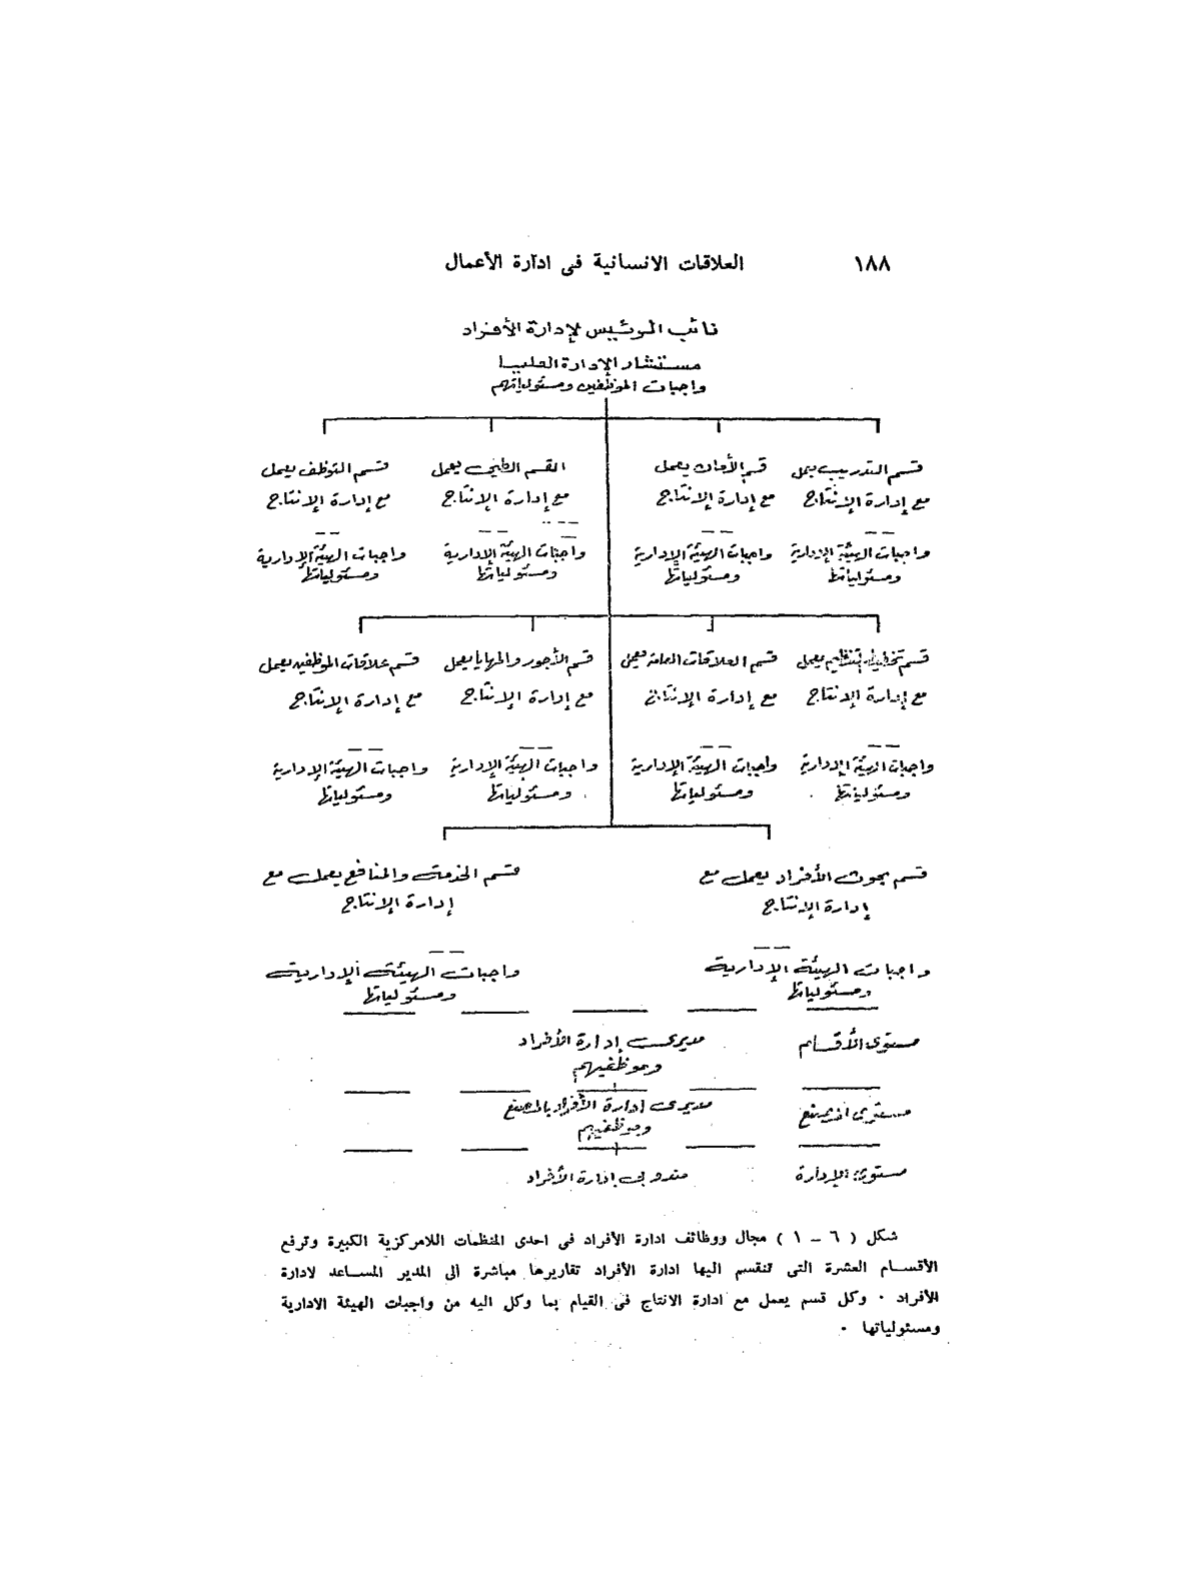 ١٨٨ العلاقات الانسانية فى ادارة الأعمال
نائب الرئيس لإدارة الأفراد
مستشار الإدارة العليا
واجبات الموظفين ومسئولياتهم
قسم التدريب يعمل
مع إدارة الإنتاج
واجبات الهيئة الإدارية
ومسئولياتها
قسم الأمان يعمل
مع إدارة الإنتاج
واجبات الهيئة الإدارية
ومسئولياتها
القسم الطبي يعمل
مع إدارة الإنتاج
واجبات الهيئة الإدارية
ومسئولياتها
قسم التوظف يعمل
مع إدارة الإنتاج
واجبات الهيئة الإدارية
ومسئولياتها
قسم تخطيط التنظيم يعمل
مع إدارة الإنتاج
واجبات الهيئة الإدارية
ومسئولياتها
قسم العلاقات العامة يعمل
مع إدارة الإنتاج
واجبات الهيئة الإدارية
ومسئولياتها
قسم الأجور والمهايا يعمل
مع إدارة الإنتاج
واجبات الهيئة الإدارية
ومسئولياتها
قسم علاقات الموظفين يعمل
مع إدارة الإنتاج
واجبات الهيئة الإدارية
ومسئولياتها
قسم بحوث الأفراد يعمل مع
إدارة الإنتاج
واجبات الهيئة الإدارية
ومسئولياتها
قسم الخدمة والمنافع يعمل مع
إدارة الإنتاج
واجبات الهيئة الإدارية
ومسئولياتها
مستوى الأقسام مديرى إدارة الأفراد
وموظفيهم
مستوى المصنع مديرى إدارة الأفراد بالمصنع
وموظفيهم
مستوى الإدارة مندوبى إدارة الأفراد
شكل ( ٦ – ١ ) مجال ووظائف ادارة الأفراد فى احدى المنظمات اللامركزية الكبيرة وترفع
الأقسام العشرة التى تنقسم اليها ادارة الأفراد تقاريرها مباشرة الى المدير المساعد لادارة
الأفراد ٠ وكل قسم يعمل مع ادارة الانتاج فى القيام بما وكل اليه من واجبات الهيئة الادارية
ومسئولياتها ٠